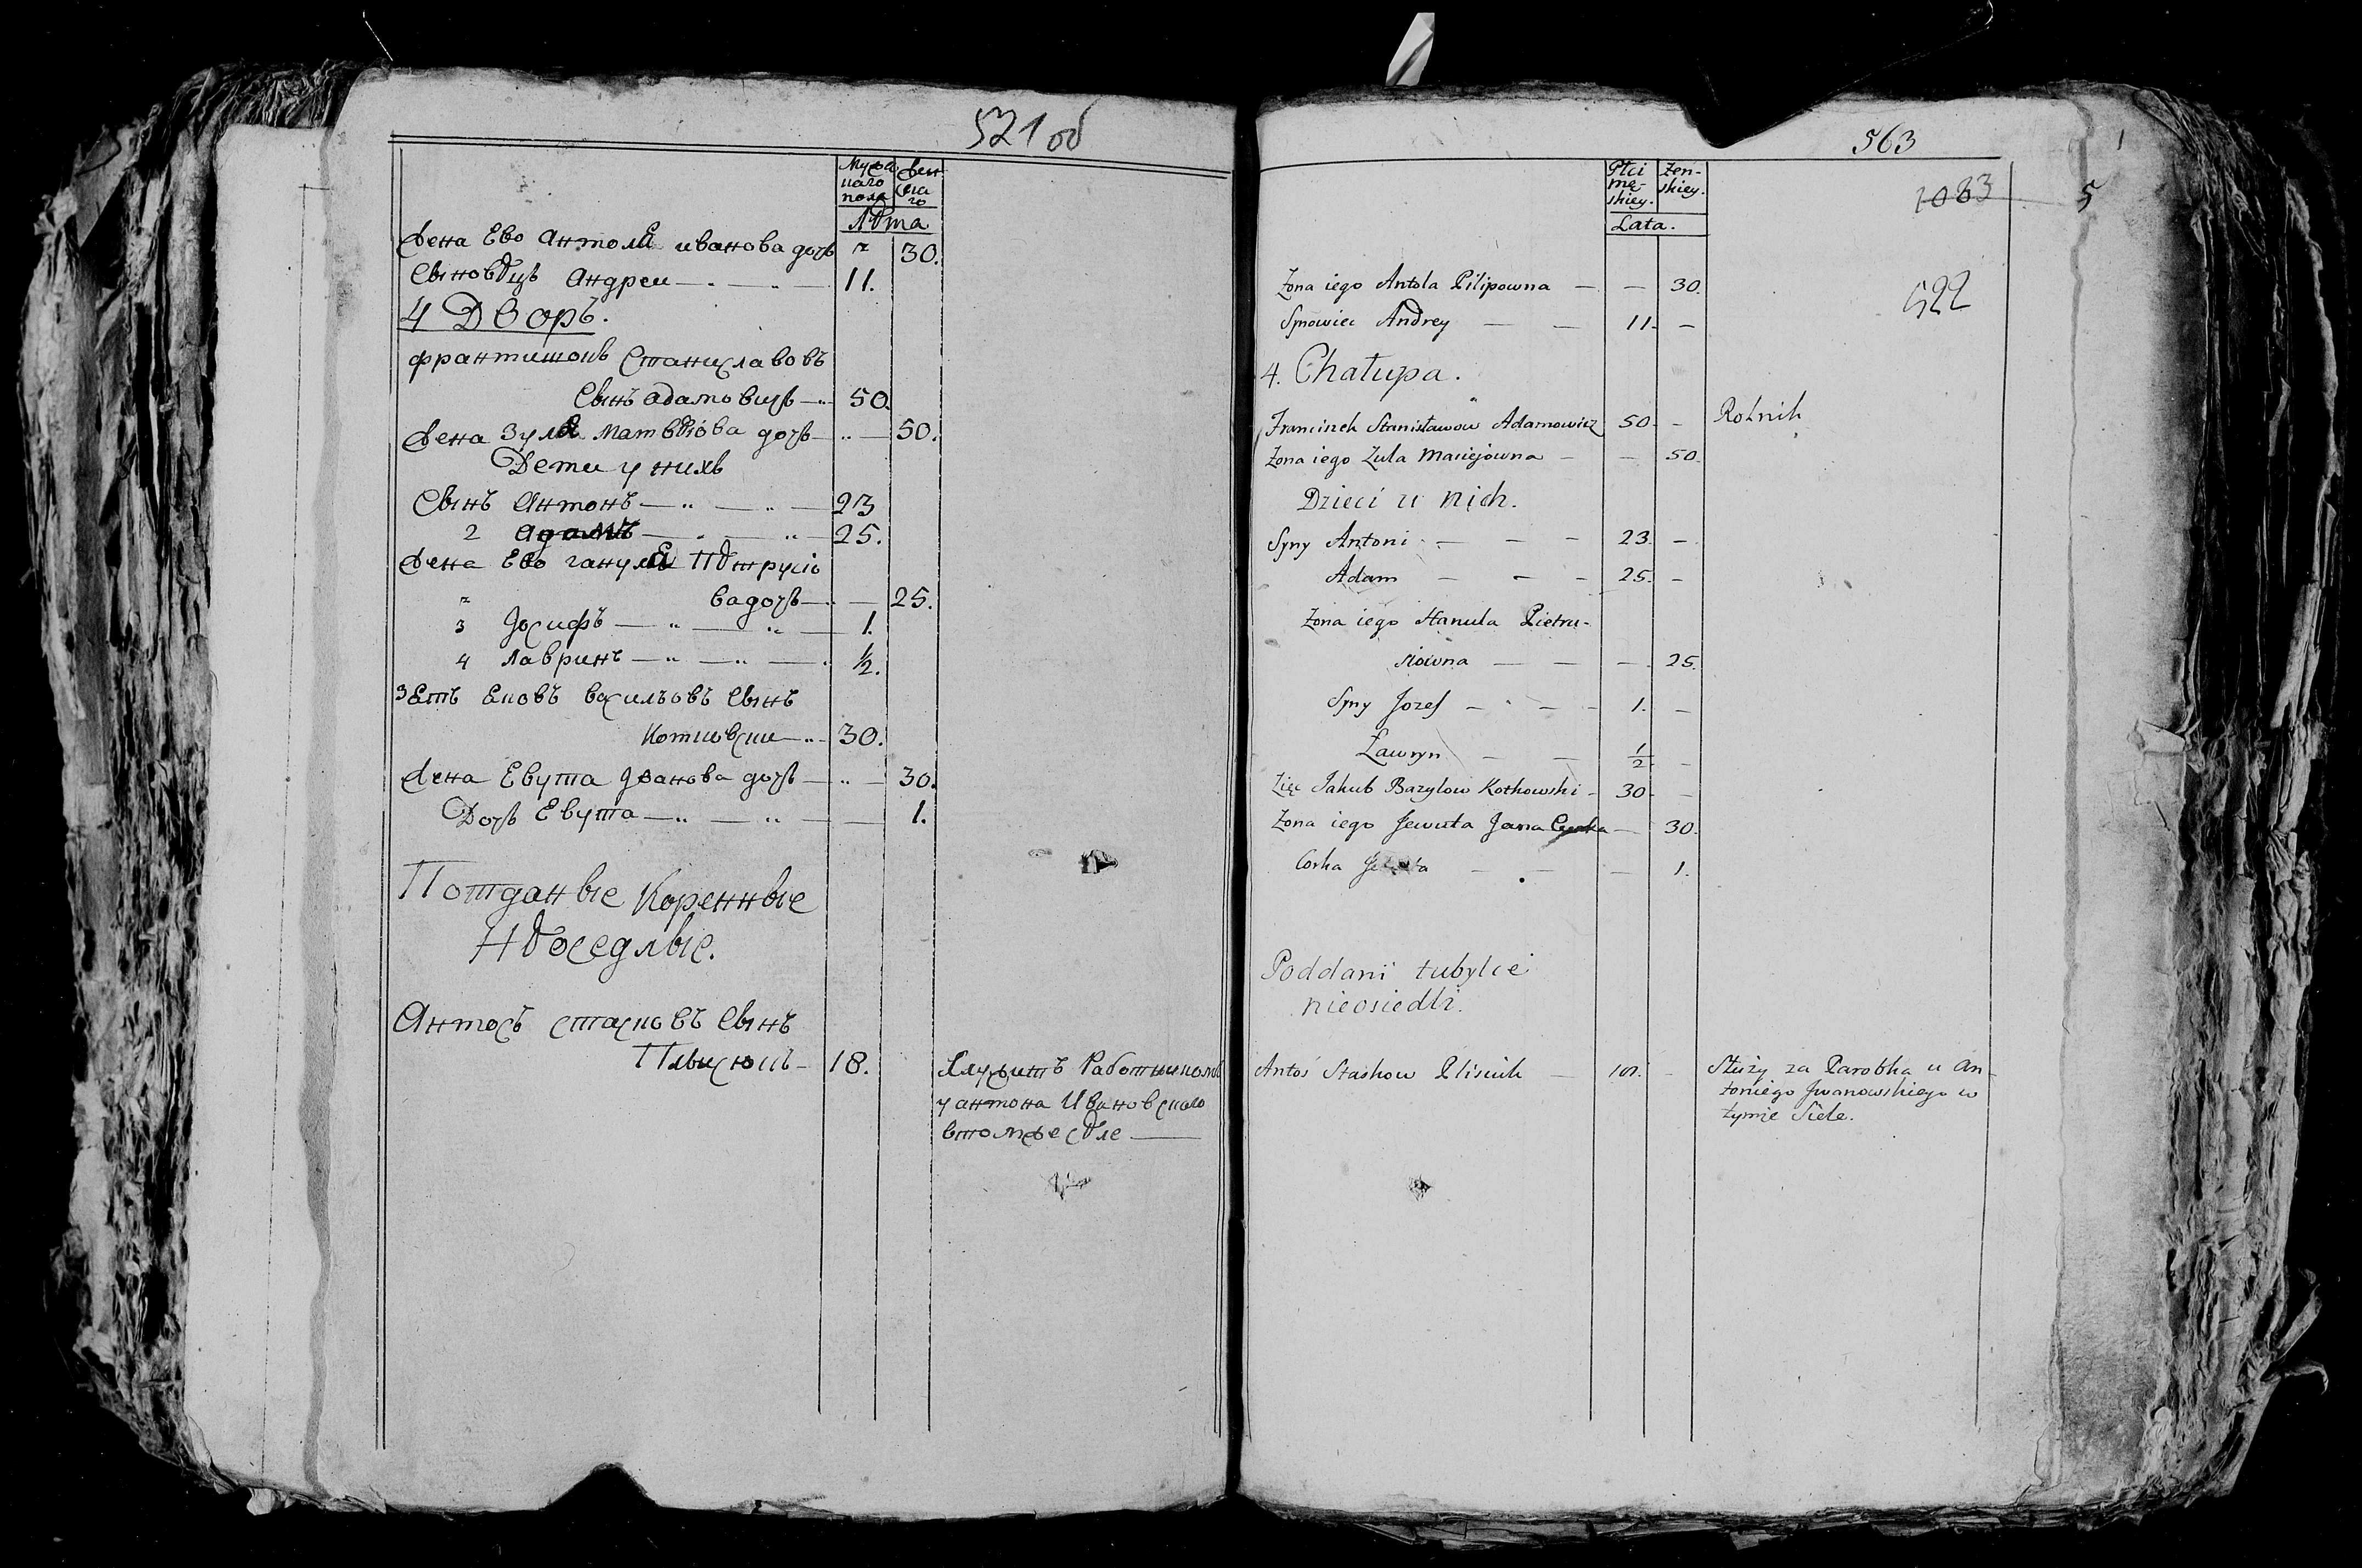 521 об
Мужс
каго
пола
жен
ска
го
Лѣта
Жена Ево Антоля иванова дочь 30.
Сыновѣцъ Андреи 11.
4 Дворъ.
франтишокъ Станиславовъ
Сынъ адамовичь 50.
Жена Зуля Матвѣіова дочь 50.
Дети у нихъ
Сынъ Антонъ 23
2 Адамъ 25.
Жена Ево гануля Пѣтрусіо
ва дочь 25.
3 Іосифъ 1.
4 Лавринъ ½.
Зеть Яковъ васильовъ Сынъ
Котковски 30.
Жена Евута Іванова дочь 30.
Дочь Евута 1.
Потданые Коренные
Нѣоседлые.
Антось стасковъ Сынъ
18.
Служитъ Работникомъ
у антона Ивановскаго
втомже сѣле
563
1083
5
522
Płci
mę-
skiey.
żen-
skiey.
Lata.
Żona iego Antola Pilipowna — — 30.
Synowiec Andrey — — 11. —
4. Chałupa.
Francisek Stanisławow Adamowicz 50 — Rolnik
Żona iego Zula Maciejowna — — 50.
Dzieci u nich.
Syny Antoni — — — 23. —
Adam — — — 25. —
Żona iego Hanula Pietru-
siowna — — — 25.
Syny Jozef — — — 1. —
Ławryn — — ½ —
Zięć Jakub Bazylow Kotkowski — 30 —
Żona iego Jewuta Jana Corka — 30.
Corka — — — 1.
Poddani tubylce
nieosiedli.
Antoś Staskow —
Służy za Parobka u An-
toniego Jwanowskiego w
tymże Siele.